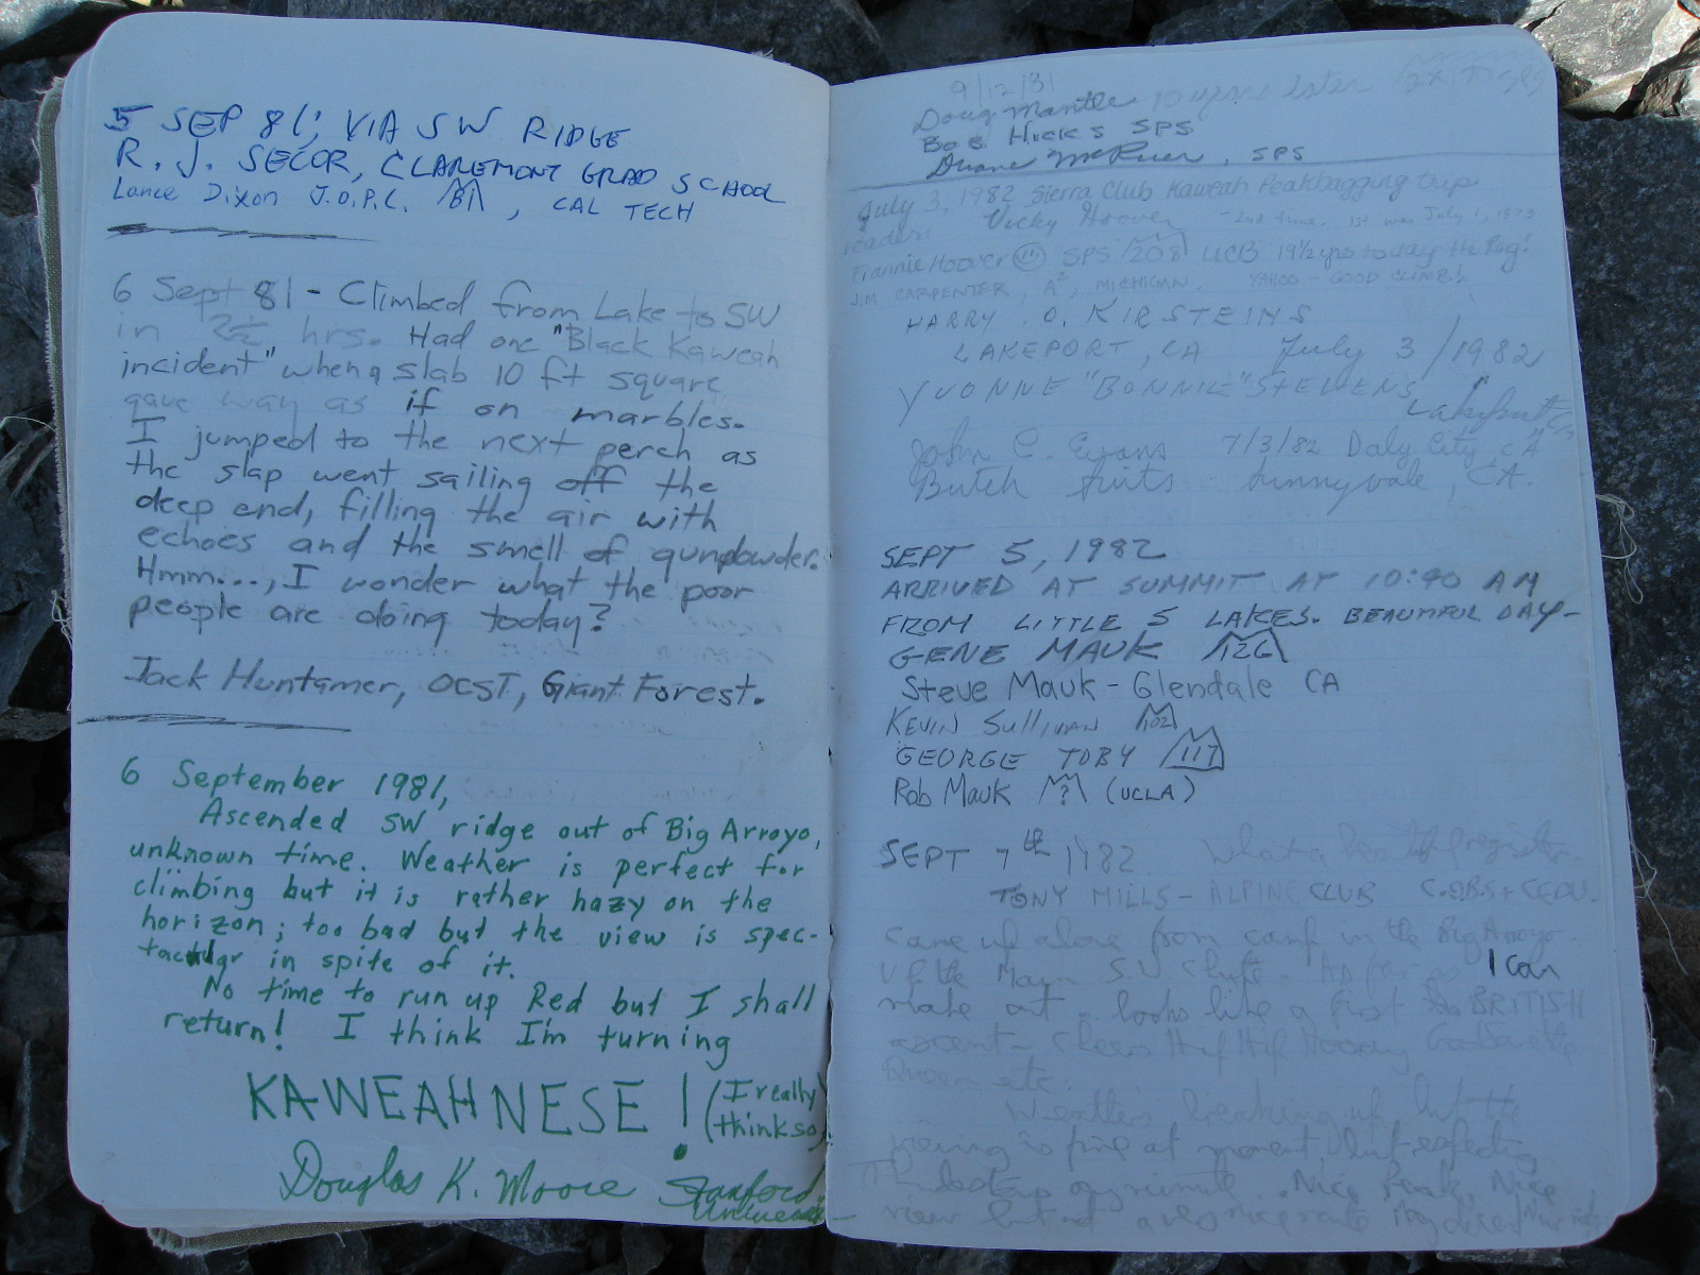 5 SEP 81; VIA SW RIDGE
R. J. SECOR, CLAREMONT GRAD SCHOOL
Lance Dixon J.O.P.C. 81, CAL TECH
6 Sept 81 - Climbed from Lake to SW
in 2½ hrs. Had one "Black Kaweah
incident" when a slab 10 ft square
gave way as if on marbles.
I jumped to the next perch as
the slap went sailing off the
deep end, filling the air with
echoes and the smell of gunpowder.
Hmm..., I wonder what the poor
people are doing today?
Jack Huntamer, OCST, Giant Forest.
6 September 1981,
Ascended SW ridge out of Big Arroyo,
unknown time. Weather is perfect for
climbing but it is rather hazy on the
horizon; too bad but the view is spec-
tacular in spite of it.
No time to run up Red but I shall
return! I think I'm turning
KAWEAHNESE! (I really
think so)
Douglas K. Moore Stanford
9/12/81
Doug Mantle 10 years later
Bob Hicks SPS
Duane McRuer, SPS
July 3, 1982 Sierra Club Kaweah Peakbagging trip
leaders Vicky Hoover - 2nd time. 1st was July 1, 1973
Frannie Hoover SPS 208 UCB 19½ yrs today
J.M. CARPENTER, MICHIGAN. YAHOO - GOOD CLIMB!
HARRY O. KIRSTEINS
LAKEPORT, CA July 3/1982
YVONNE "BONNIE" STEVENS
John C. Evans 7/3/82 Daly City, CA
Butch Sunnyvale, CA.
SEPT 5, 1982
ARRIVED AT SUMMIT AT 10:40 AM
FROM LITTLE 5 LAKES. BEAUTIFUL DAY -
GENE MAUK 126
Steve Mauk - Glendale CA
KEVIN Sullivan 102
GEORGE TOBY 117
Rob Mauk ? (UCLA)
SEPT 7th 1982. What a register
TONY MILLS - ALPINE CLUB
Came up alone from camp in the Big Arroyo
Up the Main S.W. Chute - As far as I can
make out - looks like a first BRITISH
ascent - Cheers Hip Hip Hooray
Queen etc.
Weather breaking up but the
view is fine at moment
Nice Peak, Nice
view but not a very nice route